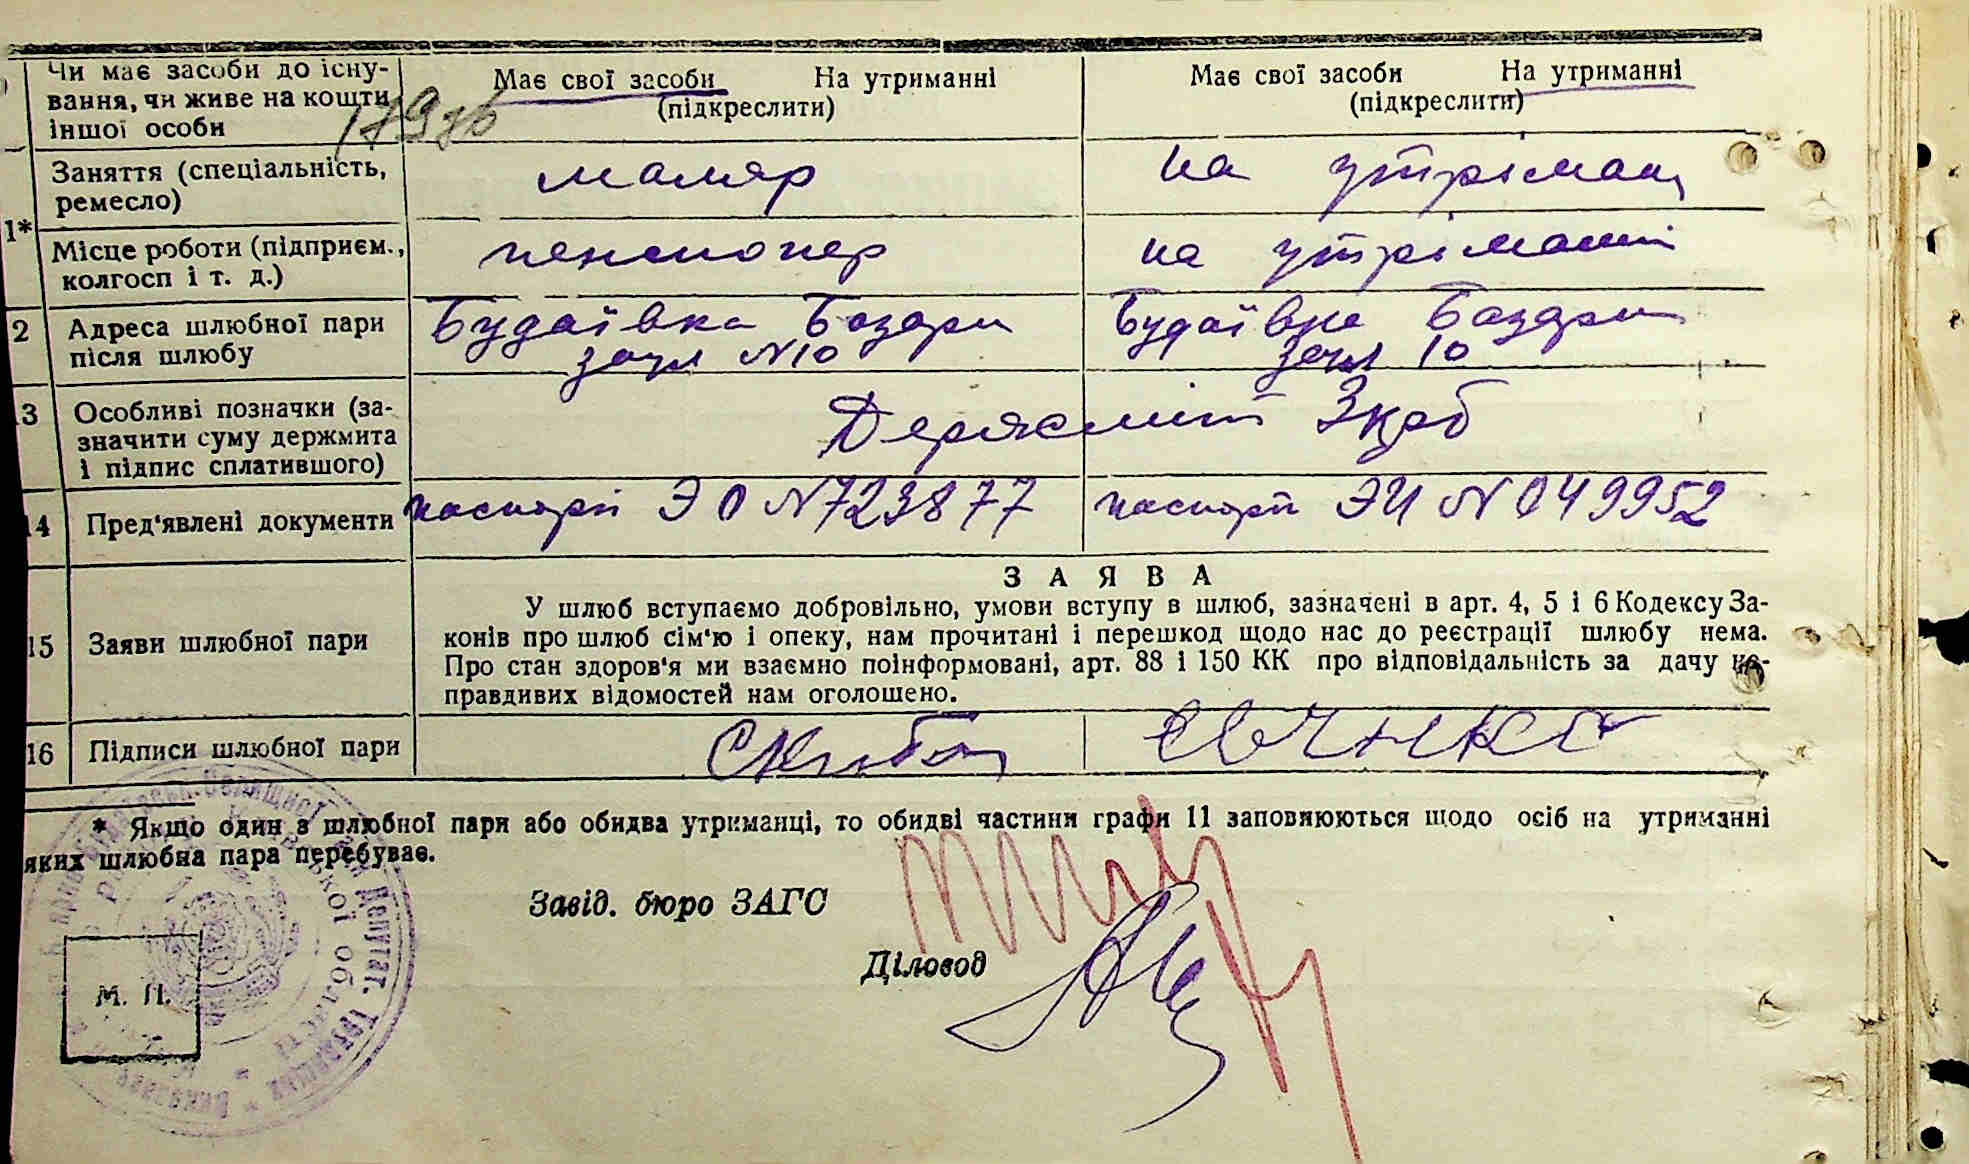 Чи має засоби до існу-
вання, чи живе на кошти
іншої особи
Має свої засоби На утриманні
(підкреслити)
Має свої засоби На утриманні
(підкреслити)
Заняття (спеціальність,
ремесло)
маляр
на утріман
1*
Місце роботи (підприєм.,
колгосп і т. д.)
пенсионер
на утріманні
2
Адреса шлюбної пари
після шлюбу
Будаївка Базарн
заул №10
Будаївка Базарн
заул 10
3
Особливі позначки (за-
значити суму держмита
і підпис сплатившого)
Держмит 3 крб
14
Пред'явлені документи
паспорт ЭО №723877
паспорт ЭИ №049952
ЗАЯВА
15
Заяви шлюбної пари
У шлюб вступаємо добровільно, умови вступу в шлюб, зазначені в арт. 4, 5 і 6 Кодексу За-
конів про шлюб сім'ю і опеку, нам прочитані і перешкод щодо нас до реєстрації шлюбу нема.
Про стан здоров'я ми взаємно поінформовані, арт. 88 і 150 КК про відповідальність за дачу не-
правдивих відомостей нам оголошено.
16
Підписи шлюбної пари
* Якщо один з шлюбної пари або обидва утриманці, то обидві частини графи 11 заповнюються щодо осіб на утриманні
яких шлюбна пара перебуває.
Завід. бюро ЗАГС
Діловод
М. П.